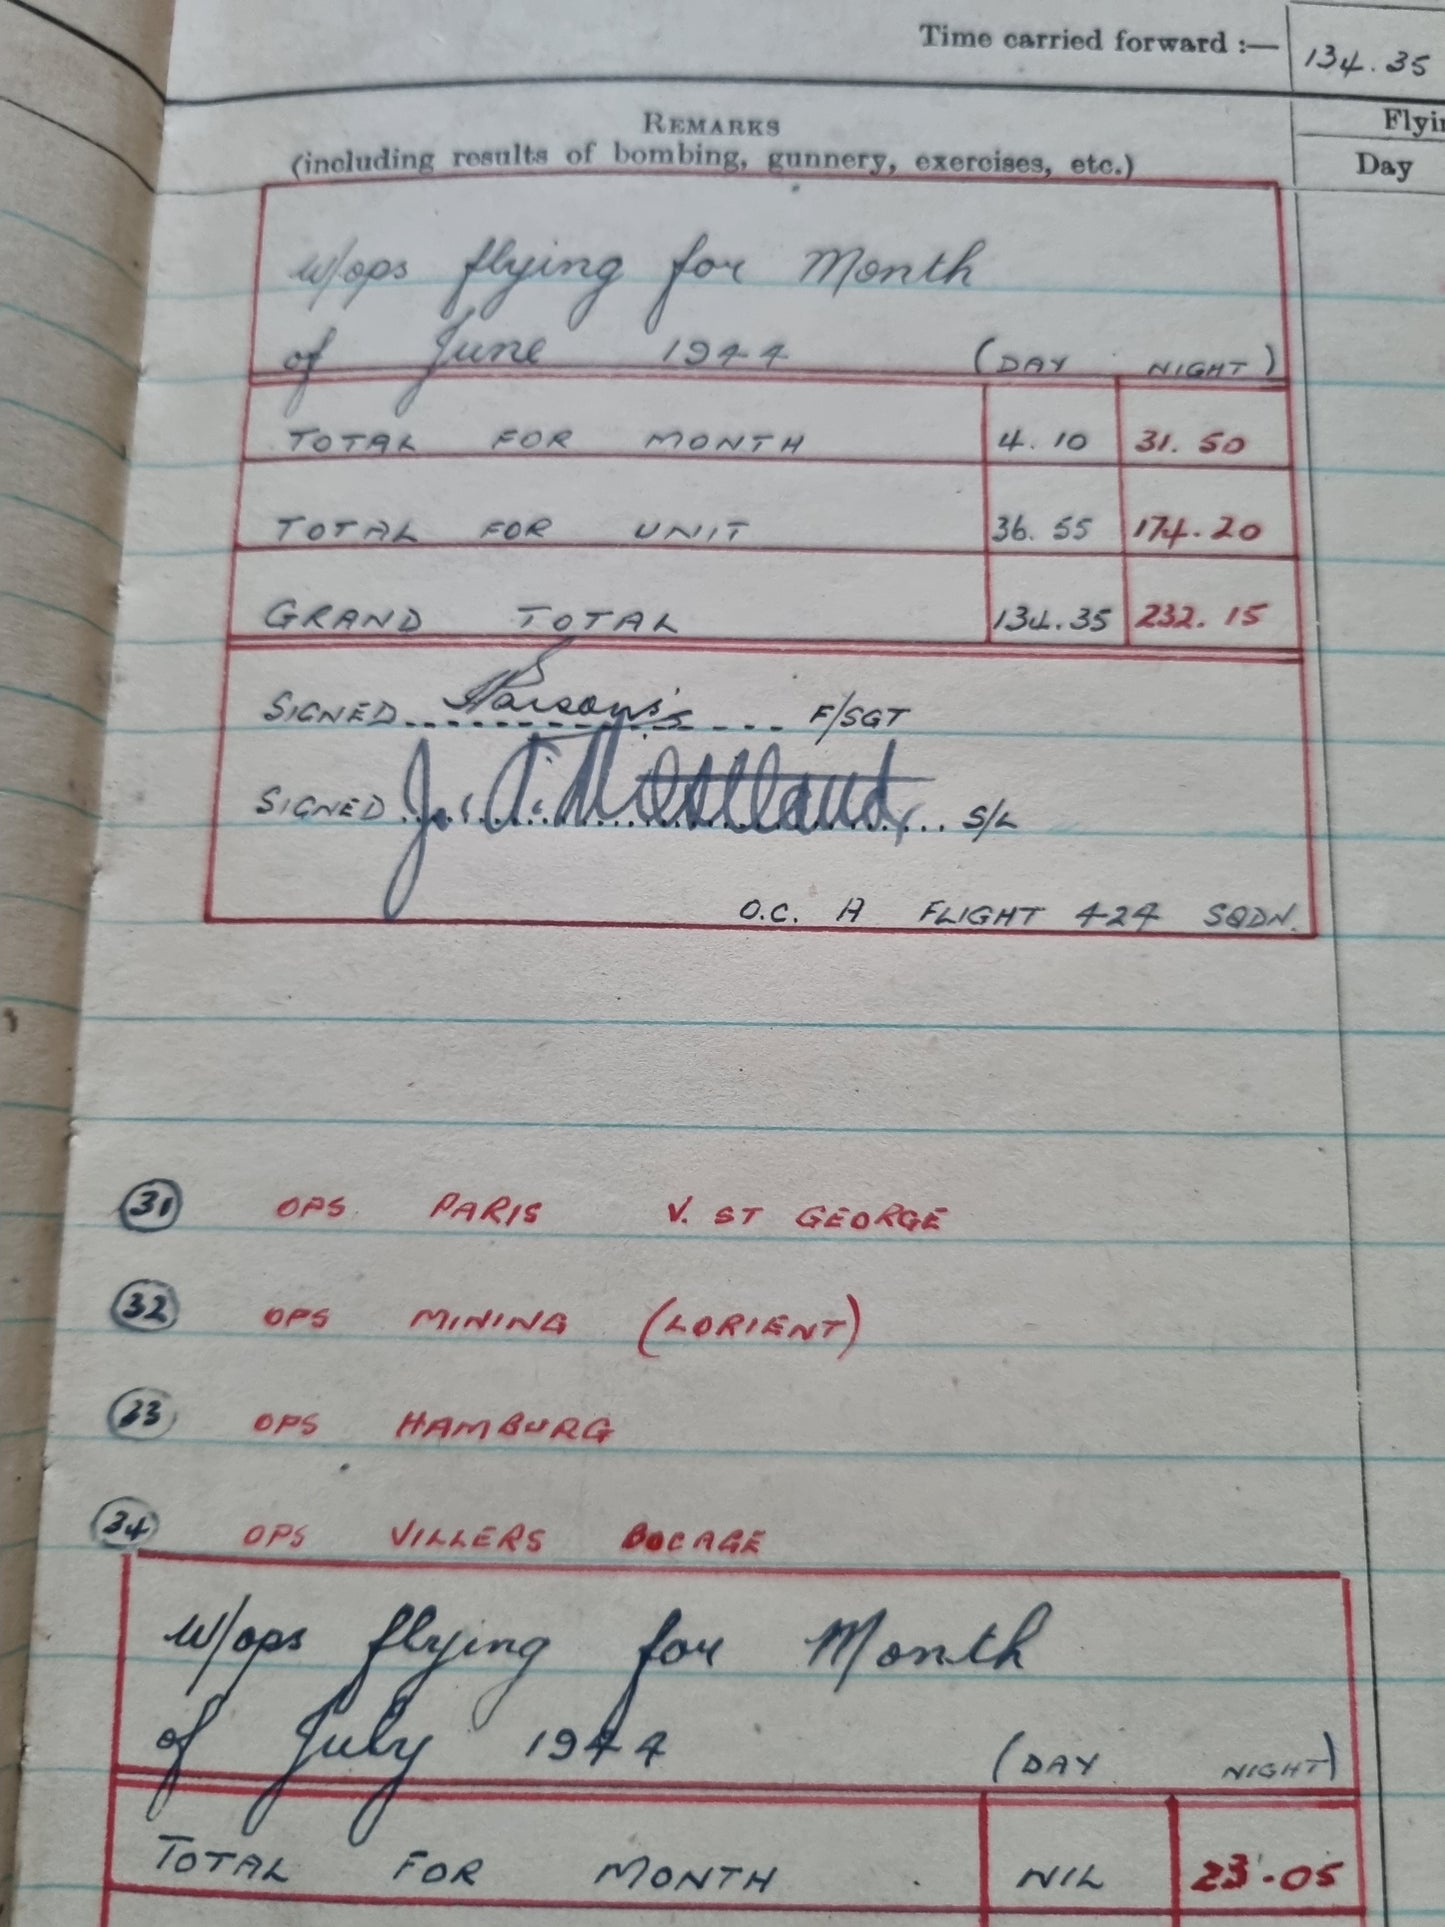 Time carried forward :— 134.35
REMARKS
(including results of bombing, gunnery, exercises, etc.)
Day
w/ops flying for Month
of June 1944 (DAY NIGHT)
TOTAL FOR MONTH 4.10 31.50
TOTAL FOR UNIT 36.55 174.20
GRAND TOTAL 134.35 232.15
SIGNED F/SGT
SIGNED S/L
O.C. A FLIGHT 424 SQDN.
31 OPS PARIS V. ST GEORGE
32 OPS MINING (LORIENT)
33 OPS HAMBURG
34 OPS VILLERS BOCAGE
w/ops flying for Month
of July 1944 (DAY NIGHT)
TOTAL FOR MONTH NIL 23.05